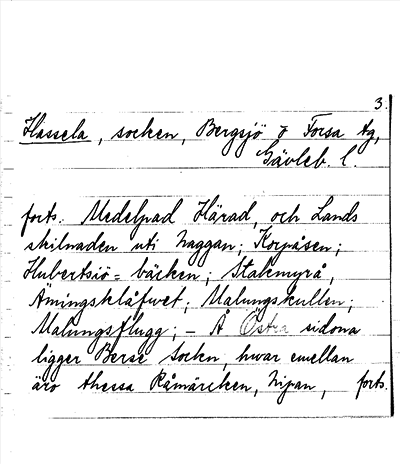 3.
Hassela, socken, Bergsjö o Forsa tg,
Gävleb. l.
forts. Medelpad Härad, och Lands
skilnaden uti Naggan; Korpåsen;
Hubertsiö=bäcken; Stakmyrå,
Äningsklåfwet; Malungskullen;
Malungsflugg; – Å Östra sidona
ligger Berse Socken, hwar emellan
äro thessa Råmärcken, Nipan, forts.